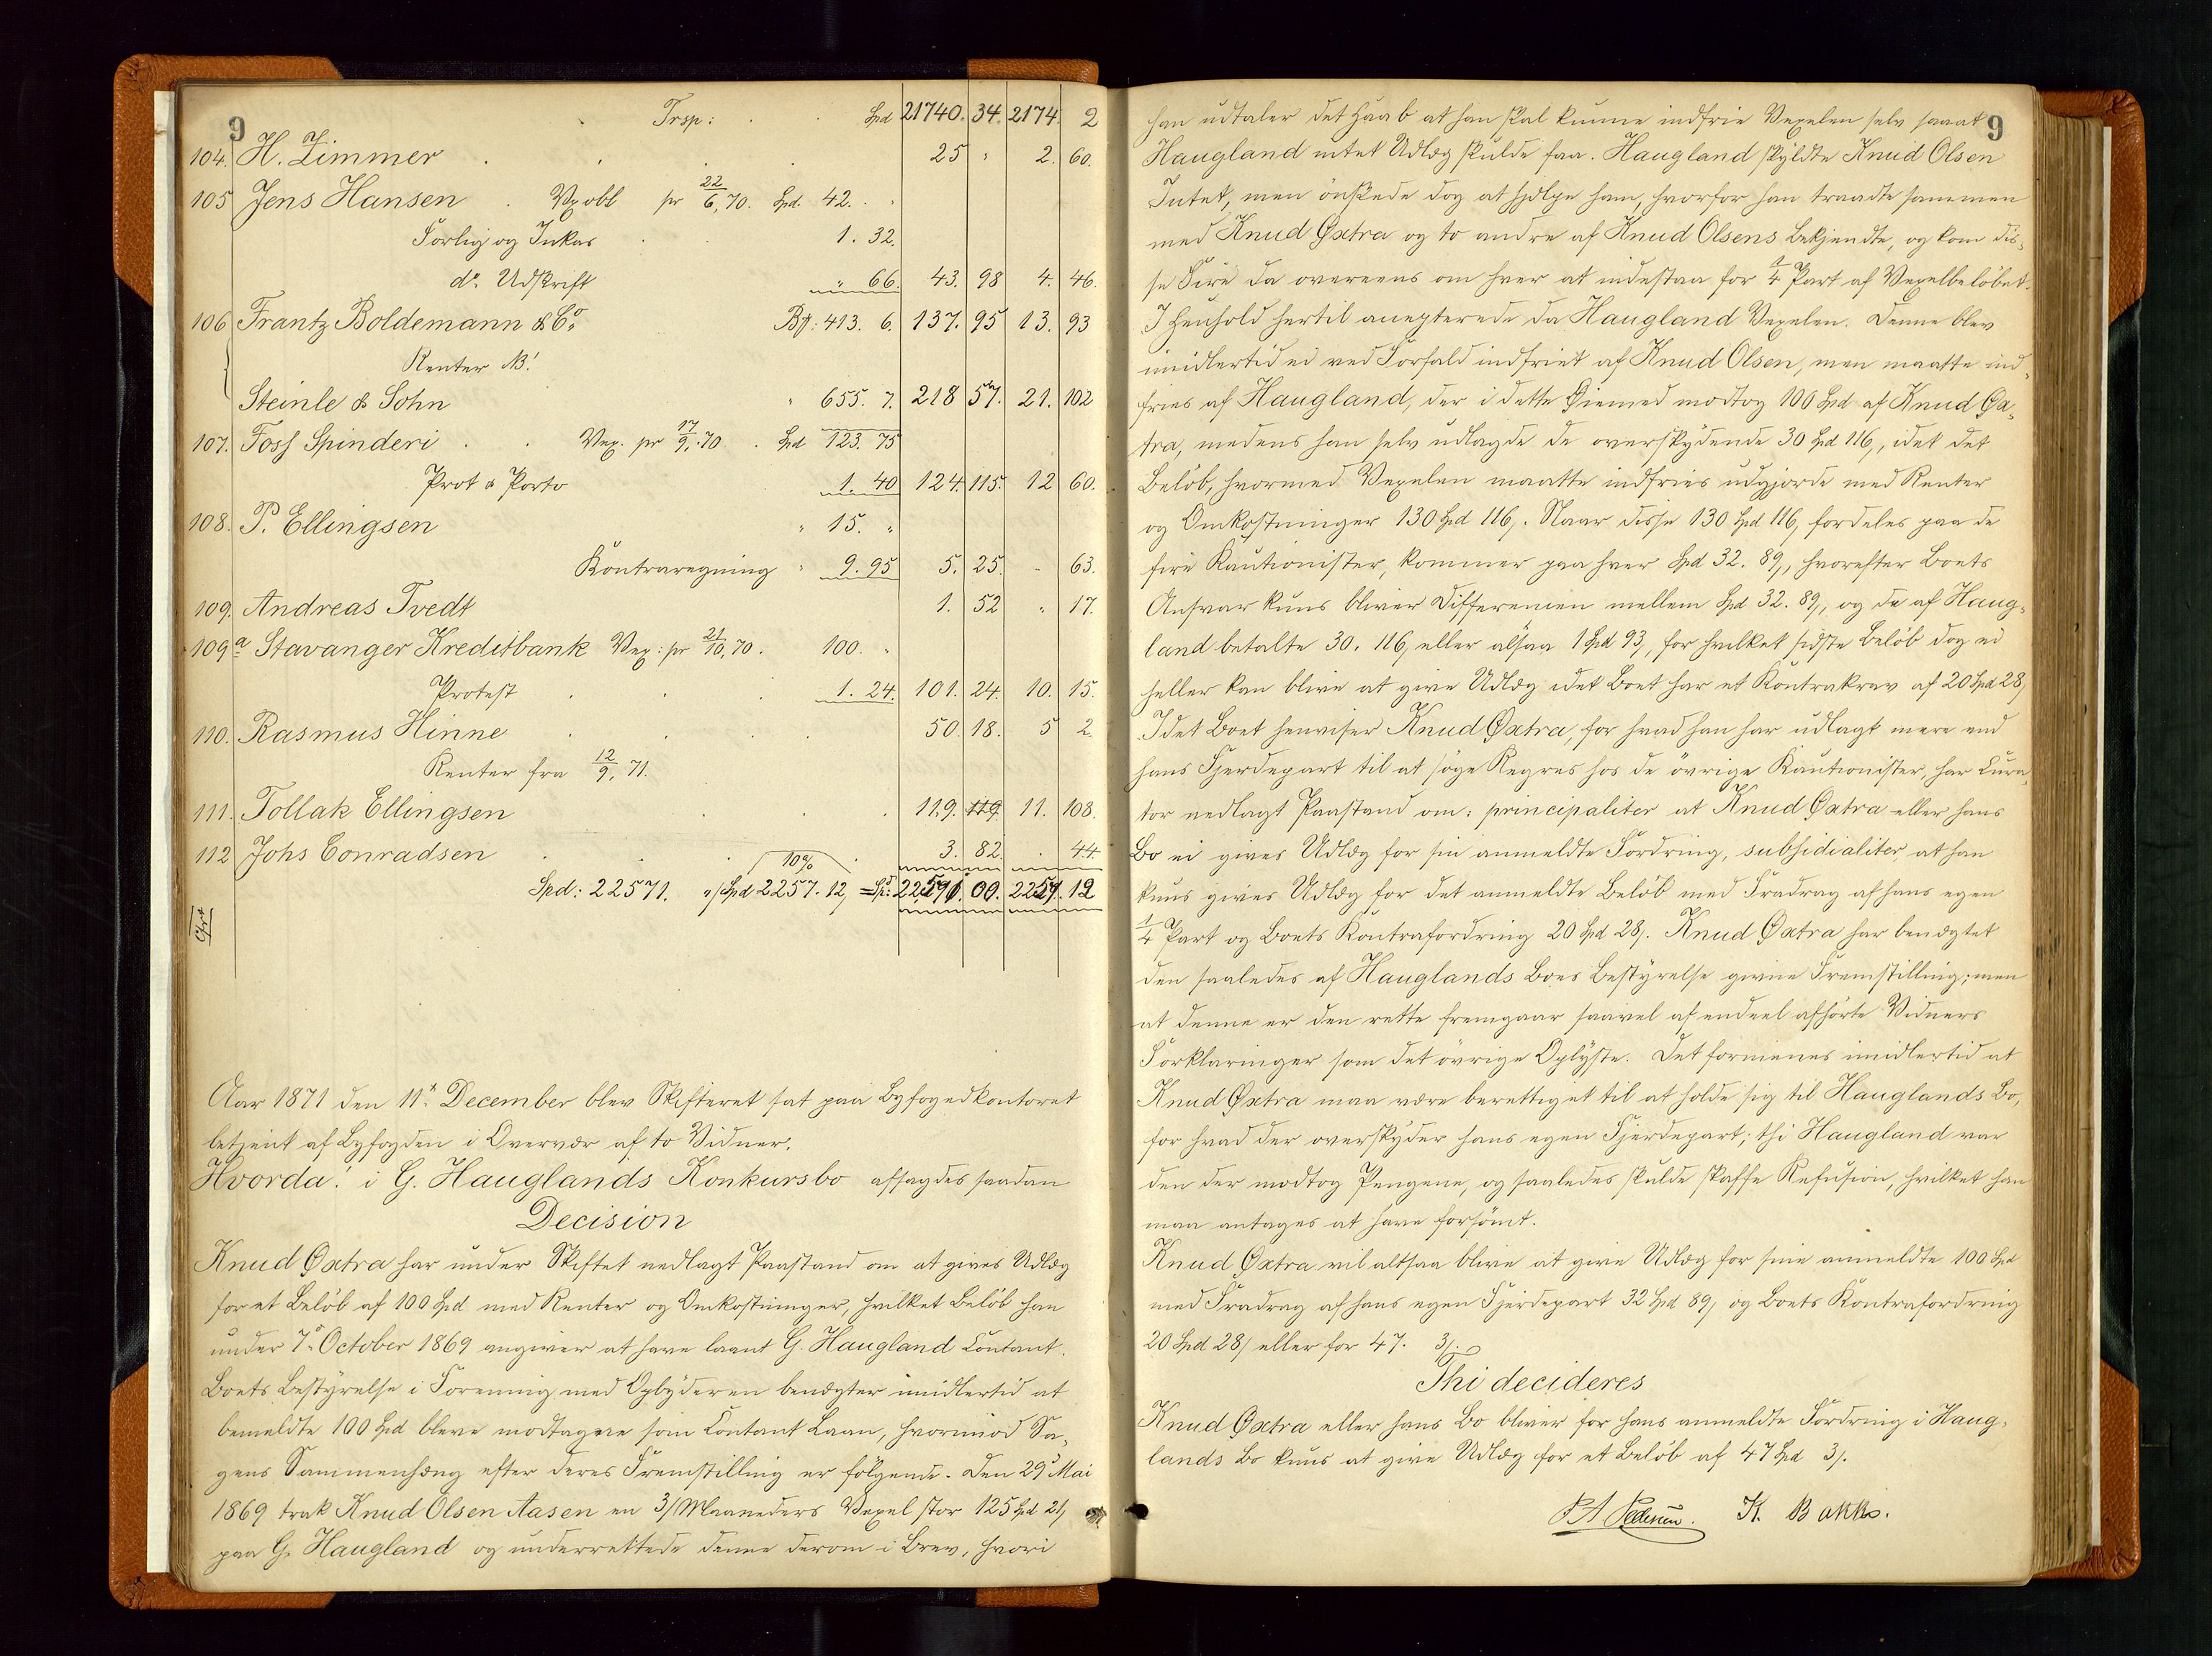 9
Trsp: Spd 21740. 34. 2174. 2
104. H. Zimmer 25 " 2. 60.
105 Jens Hansen Vxobl pr 22/6. 70. Spd. 42.
Forlig og Inkas 1. 32.
do. Udskrift " 66. 43. 98 4. 46.
106 Frantz Boldemann & Co. Bρ: 413. 6. 137. 95 13. 93
Renter
Steinle & Sohn " 655. 7. 218 57. 21. 102
107. Foss Spinderi Vex. pr 17/9. 70. Spd 123. 75
Prot & Porto 1. 40 124. 115. 12 60.
108. P. Ellingsen " 15. "
Kontraregning " 9. 95 5. 25. - 63.
109. Andreas Tvedt 1. 52 " 17.
109a Stavanger Kreditbank Vex: pr 21/10. 70. 100. "
Protest 1. 24. 101. 24. 10. 15.
110. Rasmus Hinne 50. 18. 5 2.
Renter fra 12/9. 71.
111. Tollak Ellingsen 119. 119 11. 108.
112 Johs Conradsen 3. 82. 44.
10%
Spd: 22571. Spd 2257. 12, = Sp: 22571. 00. 2257. 12
Aar 1871 den 11te December blev Skifteret sat paa Byfogedkontoret
betjent af Byfogden i Overvær af to Vidner.
Hvorda! i G. Hauglands Konkursbo afsagdes saadan
Decision
Knud Øxtra har under Skiftet nedlagt Paastand om at gives Udlæg
for et Beløb af 100 Spd med Renter og Omkostninger, hvilket Beløb han
under 7de October 1869 angiver at have laant G. Haugland Contant.
Boets Bestyrelse i Forening med Opbyderen benægter imidlertid at
bemeldte 100 Spd bleve modtagne som Contant Laan, hvorimod Sa-
gens Sammenhæng efter deres Fremstilling er følgende. Den 29de Mai
1869 trak Knud Olsen Aasen en 3/Maaneders Vexel stor 125 Spd 21,
paa G. Haugland og underrettede denne derom i Brev, hvori
9
han udtaler det Haab at han skal kunne indfrie Vexelen selv saaat
Haugland intet Udlæg skulde faa. Haugland skyldte Knud Olsen
Intet, men ønskede dog at hjælpe ham, hvorfor han traadte sammen
med Knud Øxtra og to andre af Knud Olsens Bekjendte, og kom dis-
se Fire da overeens om hver at indestaa for 1/4 Part af Vexelbeløbet.
I Henhold hertil accepterede da Haugland Vexelen. Denne blev
imidlertid ei ved Forfald indfriet af Knud Olsen, men maatte ind-
fries af Haugland, der i dette Øiemed modtog 100 Spd af Knud Øx-
tra, medens han selv udlagde de overskydende 30 Spd 116, idet det
Beløb, hvormed Vexelen maatte indfries udgjorde med Renter
og Omkostninger 130 Spd 116,. Naar disse 130 Spd 116, fordeles paa de
fire Kautionister, kommer paa hver Spd 32. 89, hvorefter Boets
Ansvar kuns bliver Differencen mellem Spd 32. 89, og de af Haug-
land betalte 30. 116, eller altsaa 1 Spd 93, for hvilket sidste Beløb dog ei
heller kan blive at give Udlæg idet Boet har et Kontrakrav af 20 Spd 28,
Idet Boet henviser Knud Øxtra, for hvad han har udlagt mere end
hans Fjerdepart til at søge Regres hos de øvrige Kautionister, har Cura-
tor nedlagt Paastand om: principaliter at Knud Øxtra eller hans
Bo ei gives Udlæg for sin anmeldte Fordring, subsidialiter, at han
kuns gives Udlæg for det anmeldte Beløb med Fradrag af hans egen
1/4 Part og Boets Kontrafordring 20 Spd 28,. Knud Øxtra har benægtet
den saaledes af Hauglands Boes Bestyrelse givne Fremstilling; men
at denne er den rette fremgaar saavel af endeel afhørte Vidners
Forklaringer som det øvrige Oplyste. Det formenes imidlertid at
Knud Øxtra maa være berettiget til at holde sig til Hauglands Bo,
for hvad der overskyder hans egen Fjerdepart; thi Haugland var
den der modtog Pengene, og saaledes skulde skaffe Refusion, hvilket han
maa antages at have forsømt.
Knud Øxtra vil altsaa blive at give Udlæg for sine anmeldte 100 Spd
med Fradrag af hans egen Fjerdepart 32 Spd 89, og Boets Kontrafordring
20 Spd 28, eller for 47. 3/.
Thi decideres
Knud Øxtra eller hans Bo bliver for hans anmeldte Fordring i Haug-
lands Bo kuns at give Udlæg for et Beløb af 47 Spd 3/.
P A Pedersen. K. Bakke.